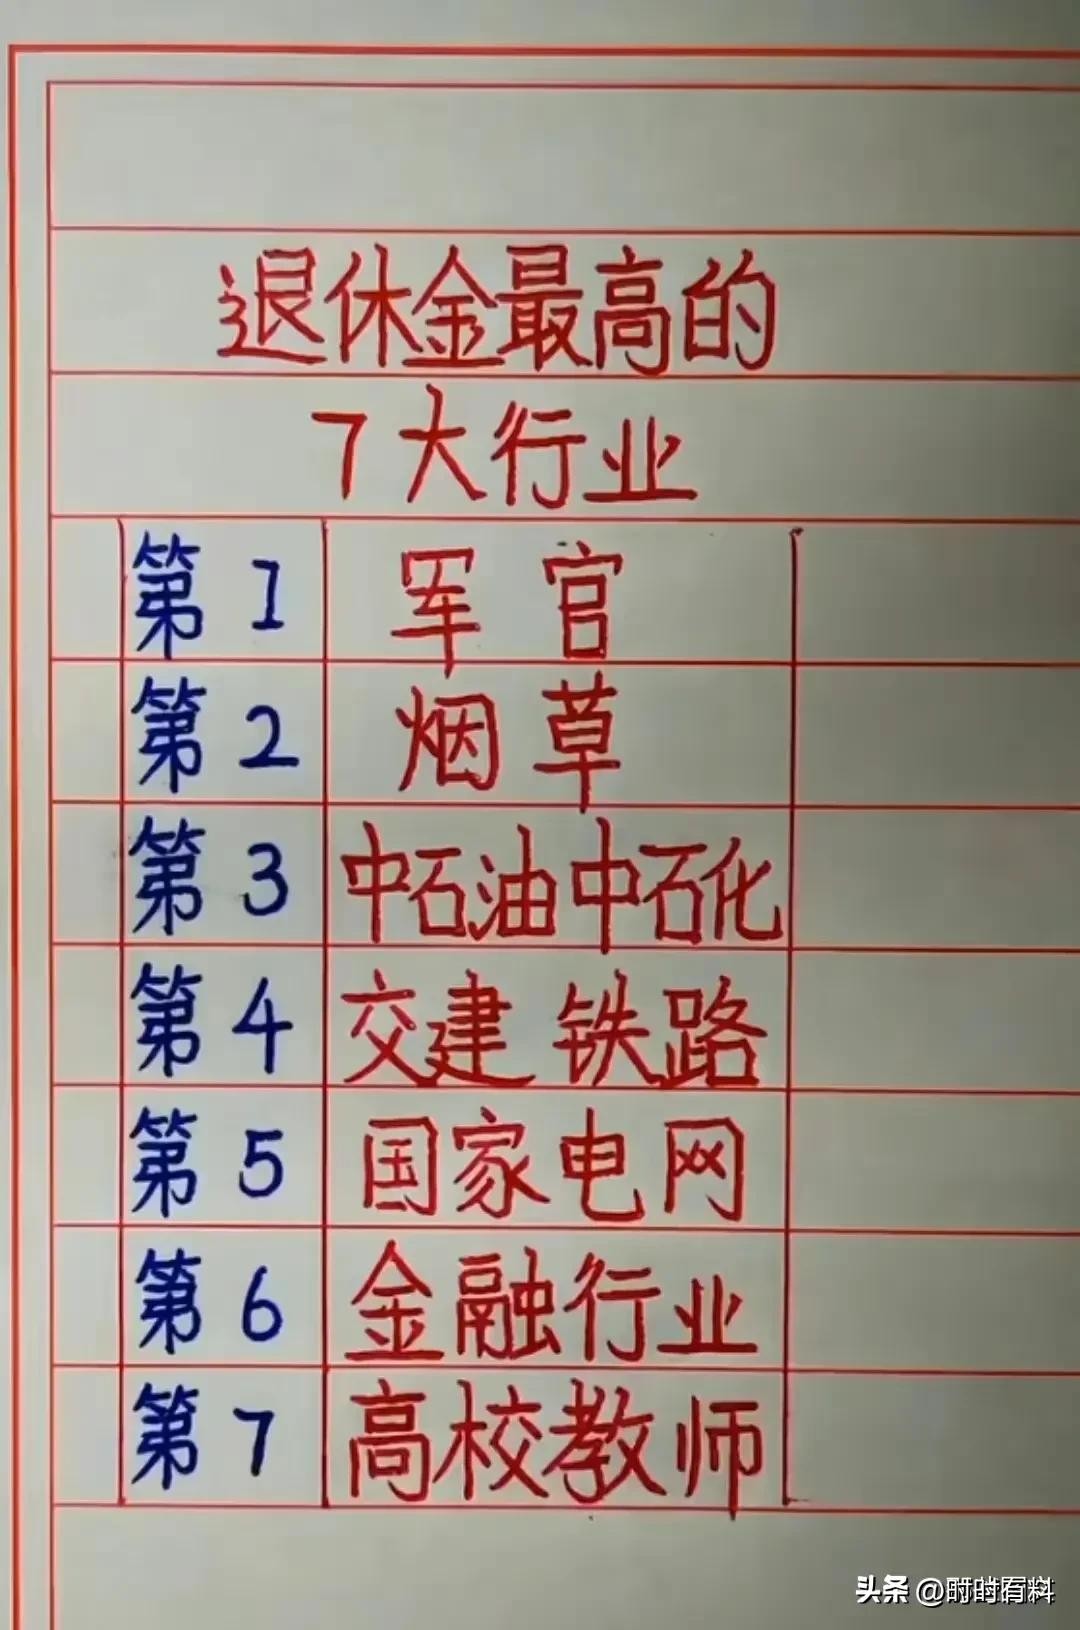 退休金最高的
7大行业
第1 军官
第2 烟草
第3 中石油中石化
第4 交建 铁路
第5 国家电网
第6 金融行业
第7 高校教师
头条 @时时有料